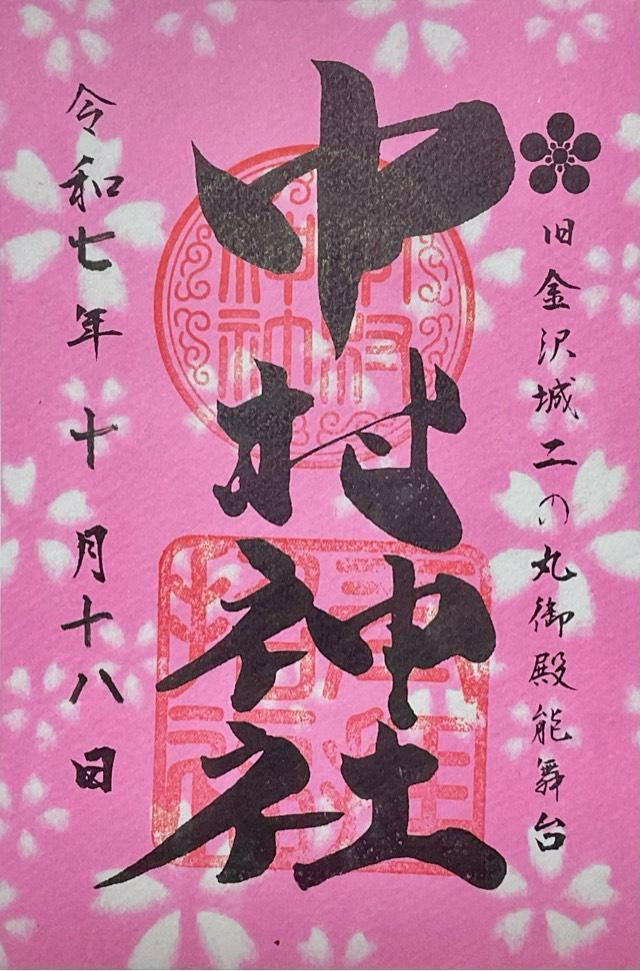 旧金沢城二の丸御殿能舞台
中村神社
令和七年十月十八日